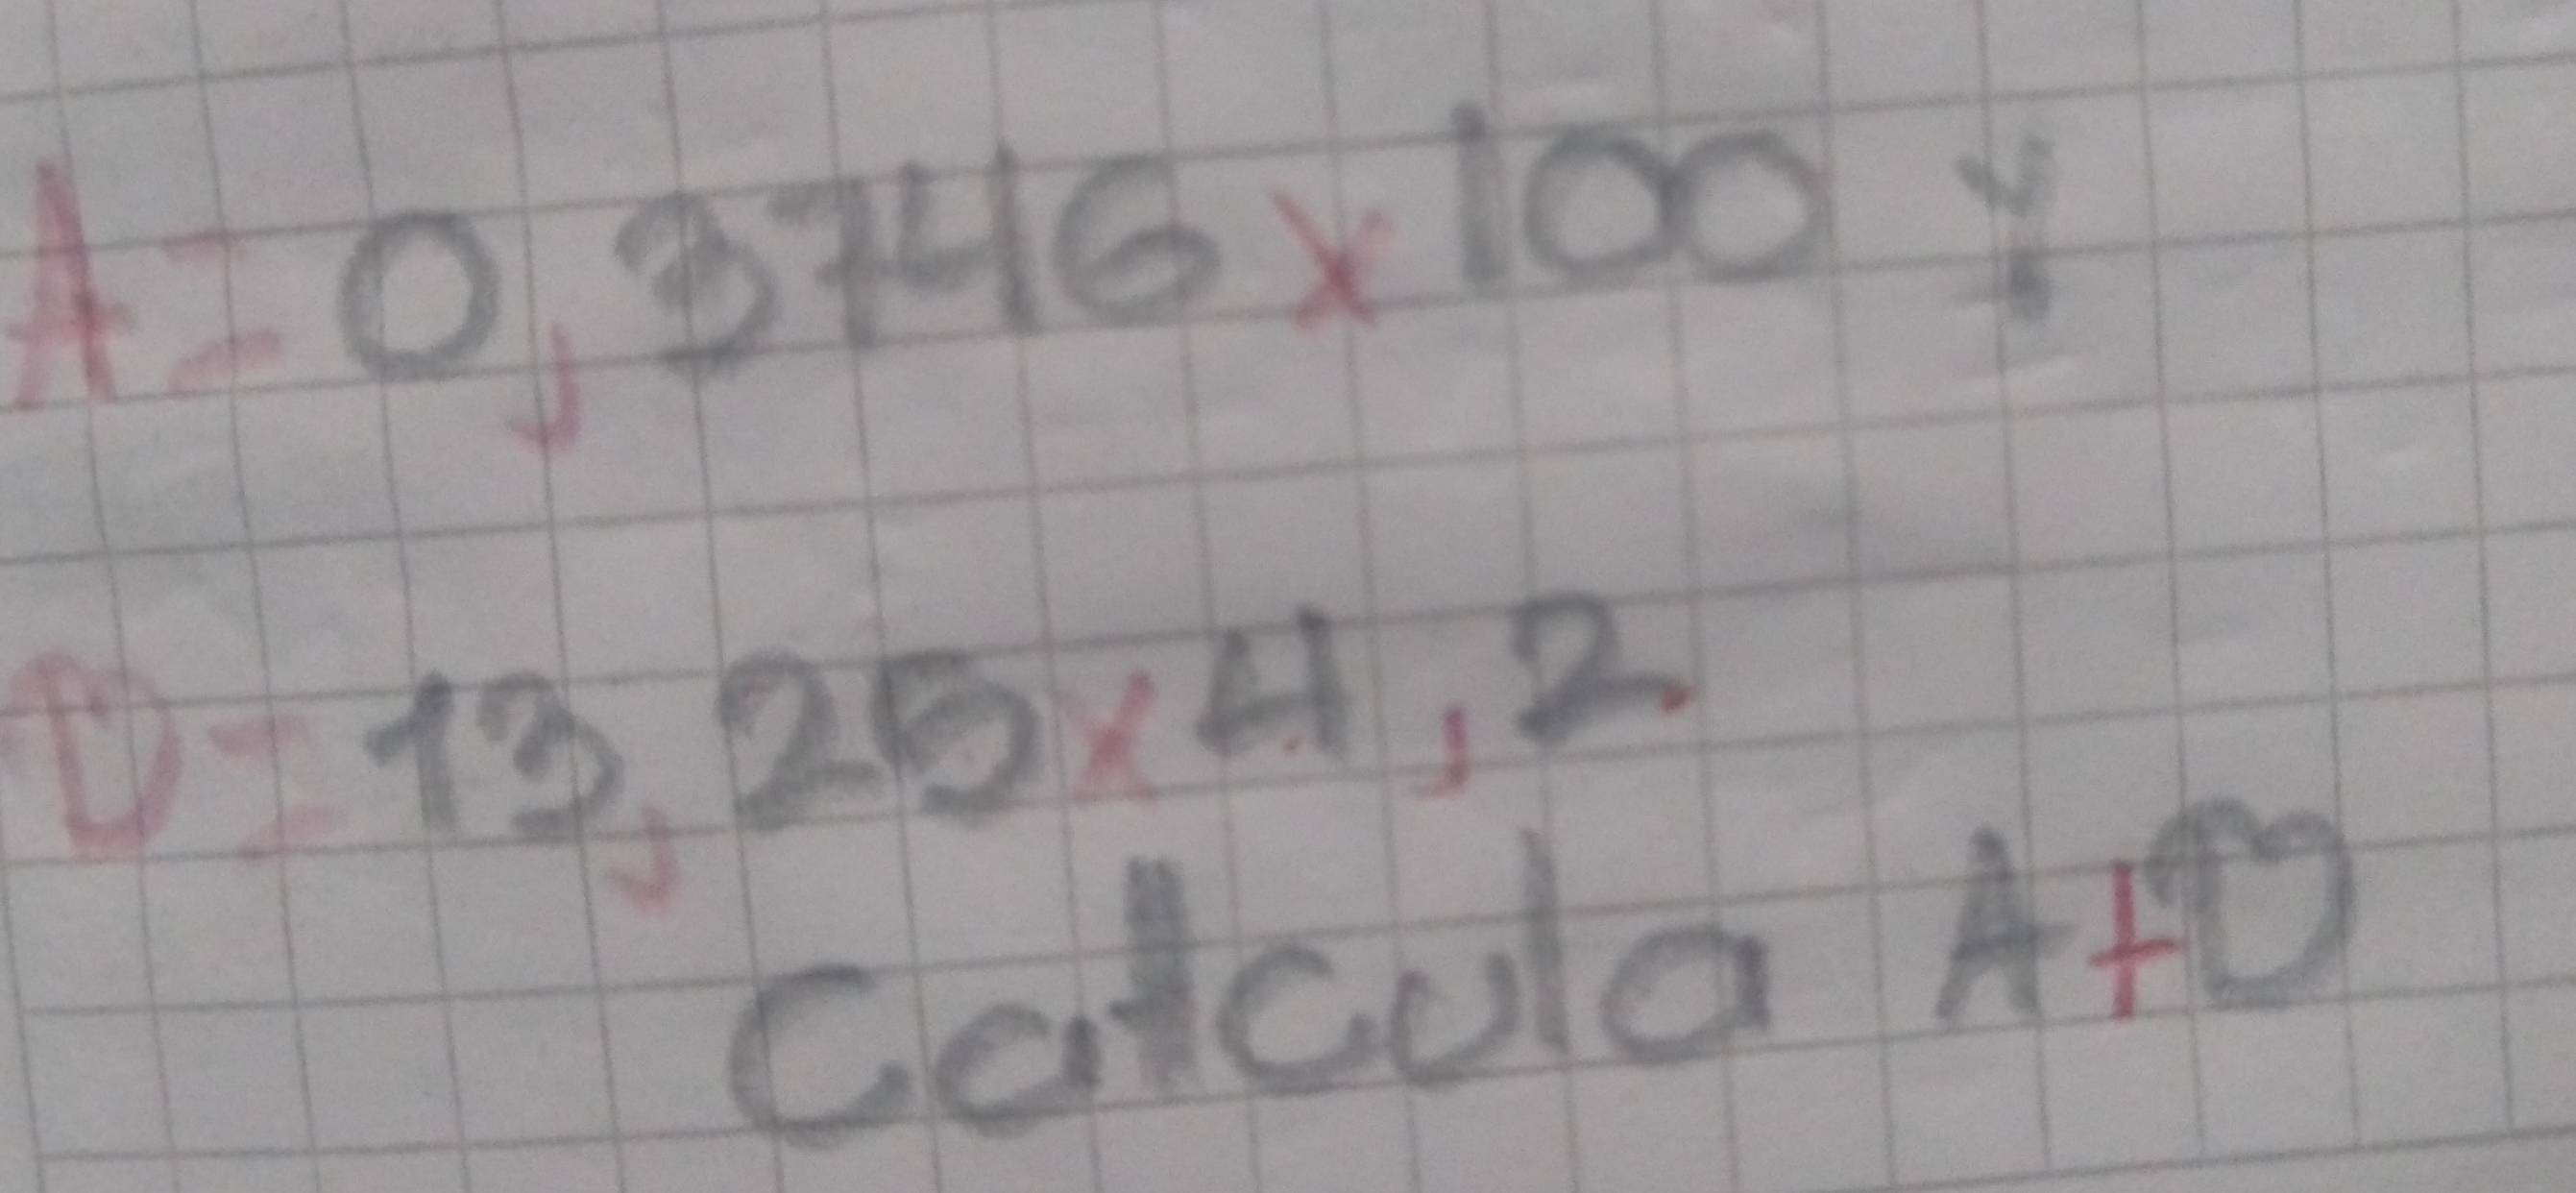 A = 0,3746 x 100 y
D = 13,25 x 4,2.
Calcula A + D